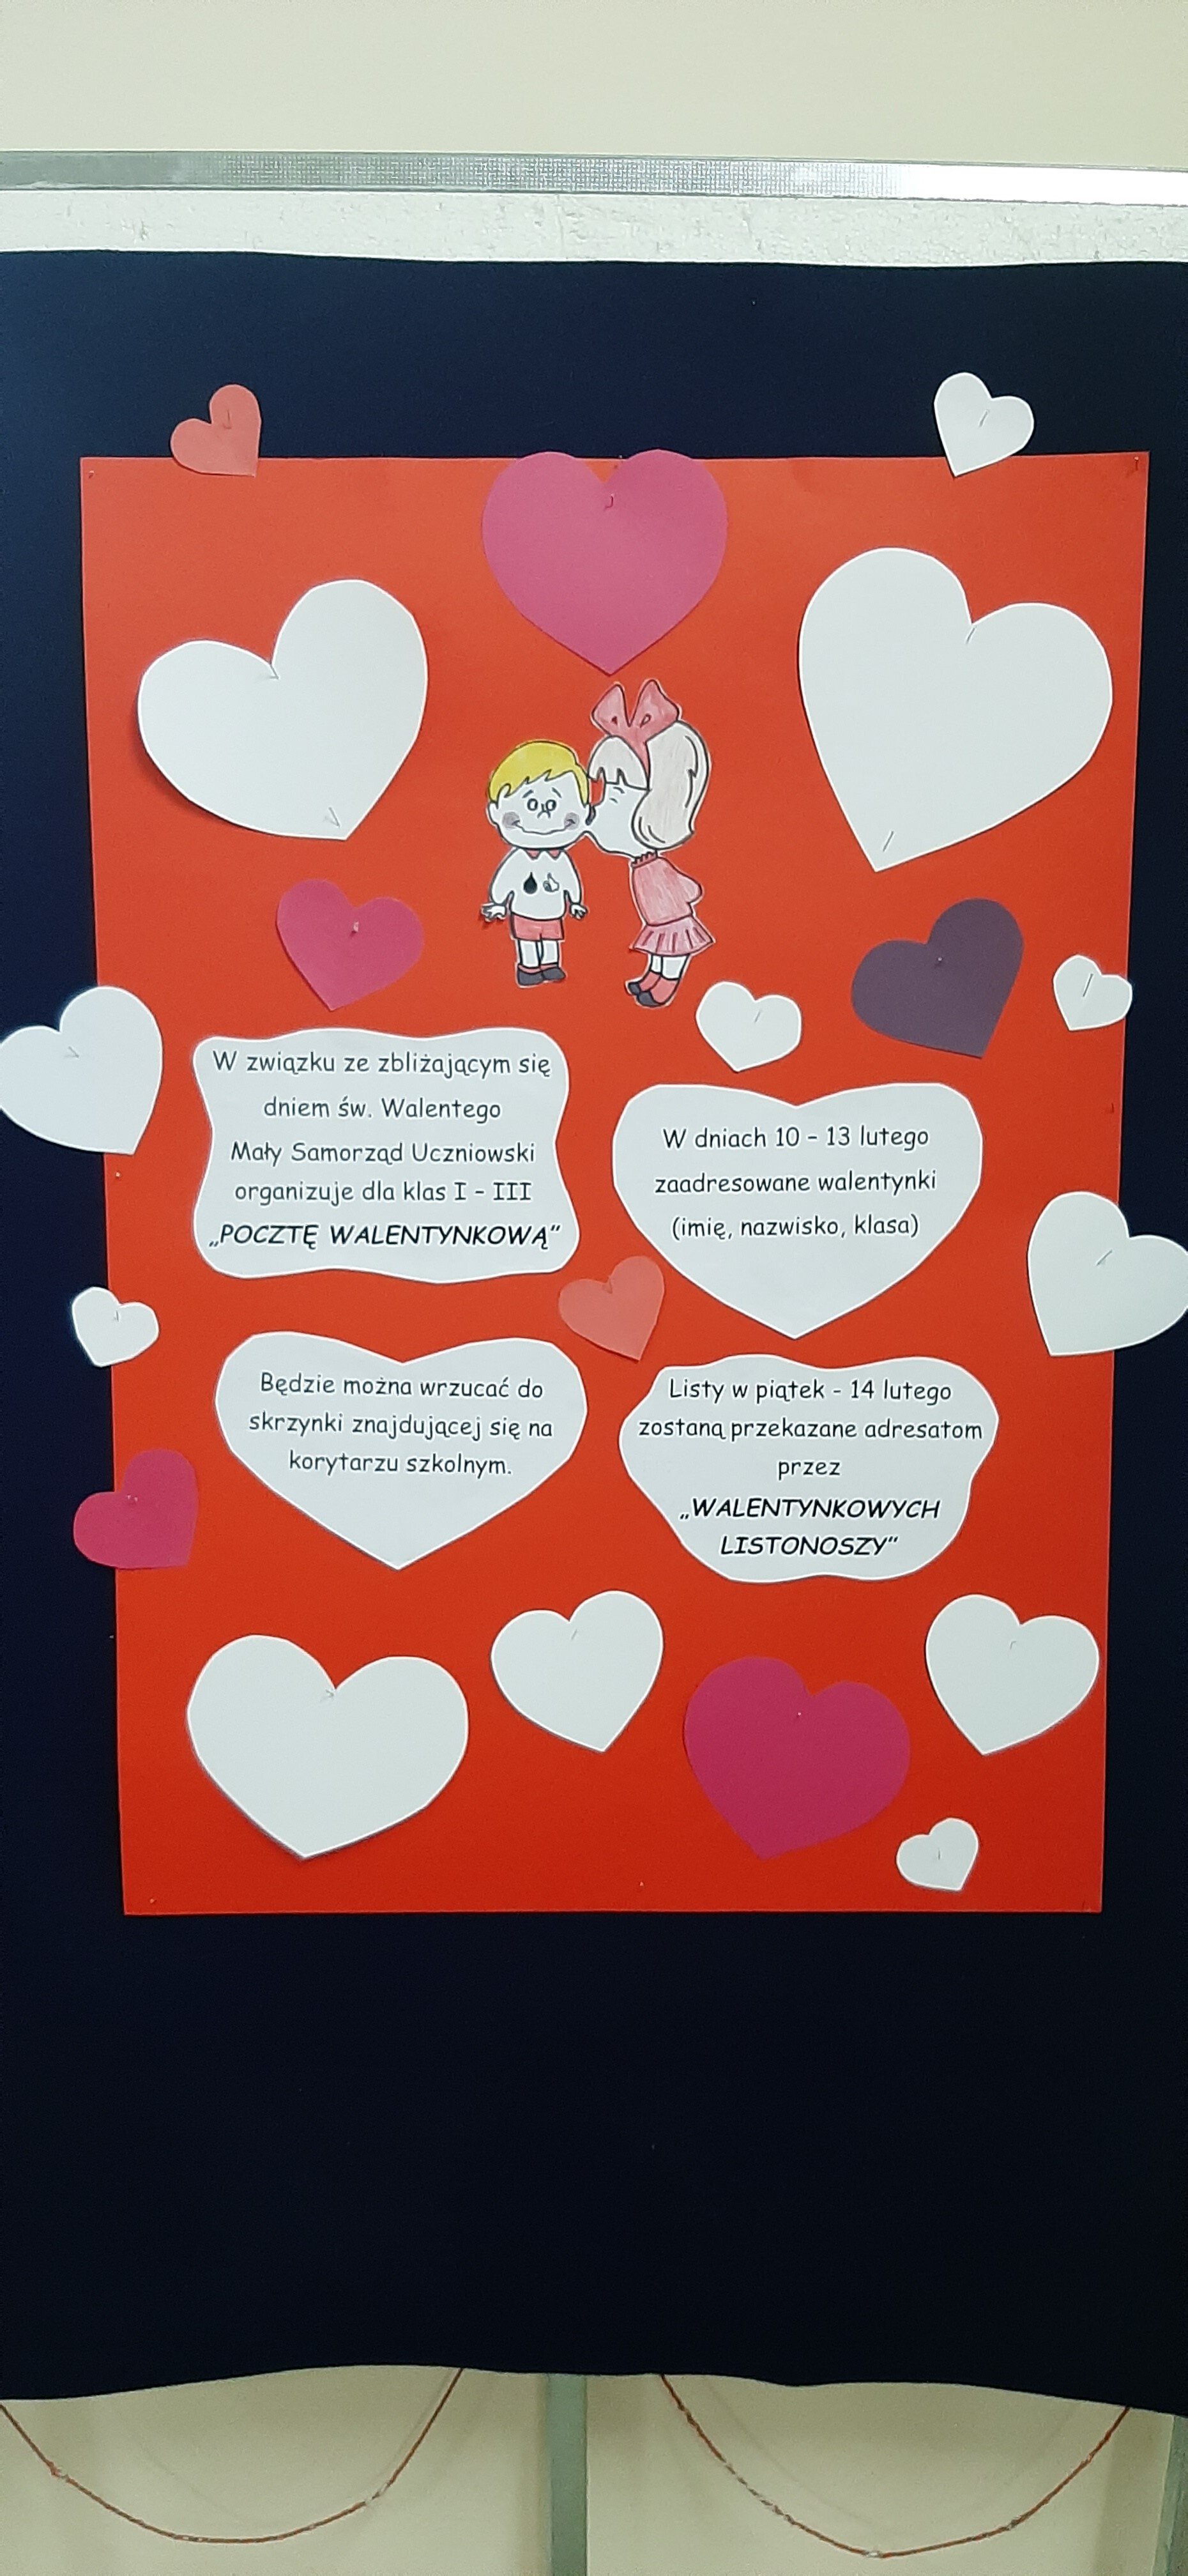 W związku ze zbliżającym się
dniem św. Walentego
Mały Samorząd Uczniowski
organizuje dla klas I – III
„POCZTĘ WALENTYNKOWĄ”
W dniach 10 – 13 lutego
zaadresowane walentynki
(imię, nazwisko, klasa)
Będzie można wrzucać do
skrzynki znajdującej się na
korytarzu szkolnym.
Listy w piątek - 14 lutego
zostaną przekazane adresatom
przez
„WALENTYNKOWYCH
LISTONOSZY”